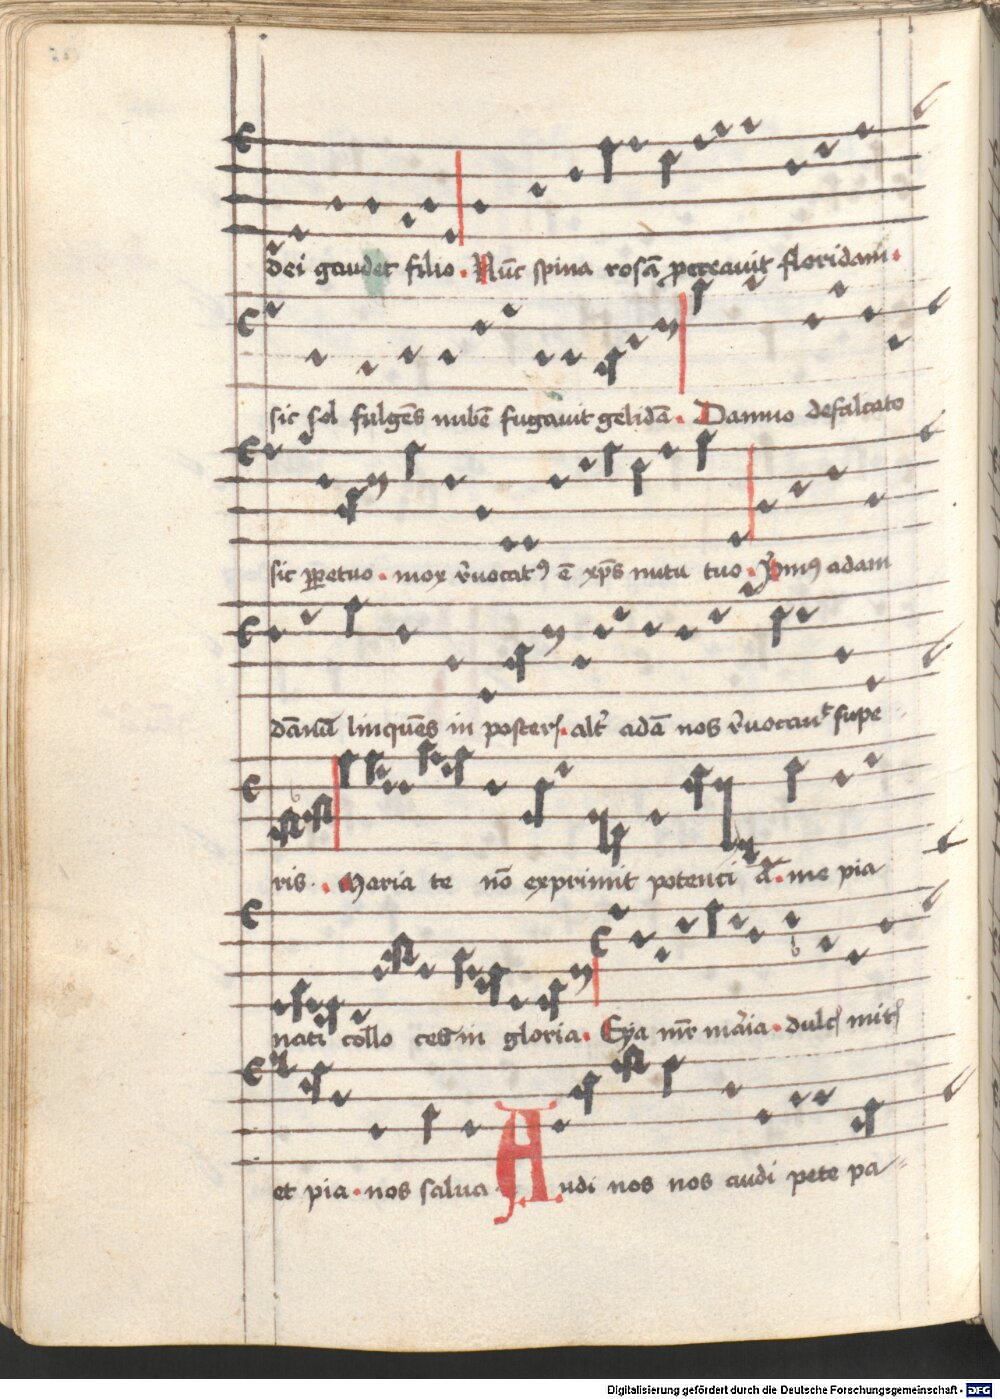 dei gaudet filio. Nūc spina rosā pcreauit floridam.
sic sol fulgēs nubē fugauit gelidā. Damno defalcato
sic ꝑpetuo. mox r̄uocatꝰ ē xp̄s nutu tuo. Pͥmꝰ adam
dānū linquēs in poster. alt̄ adā nos r̄uocauͭ supe
ris. Maria te nō exprimit potenci a. me pia
nati collo ces in gloria. Eya mr̄ maͥia. dulc mit
et pia. nos salua. Audi nos nos audi pete pa
Digitalisierung gefördert durch die Deutsche Forschungsgemeinschaft - DFG